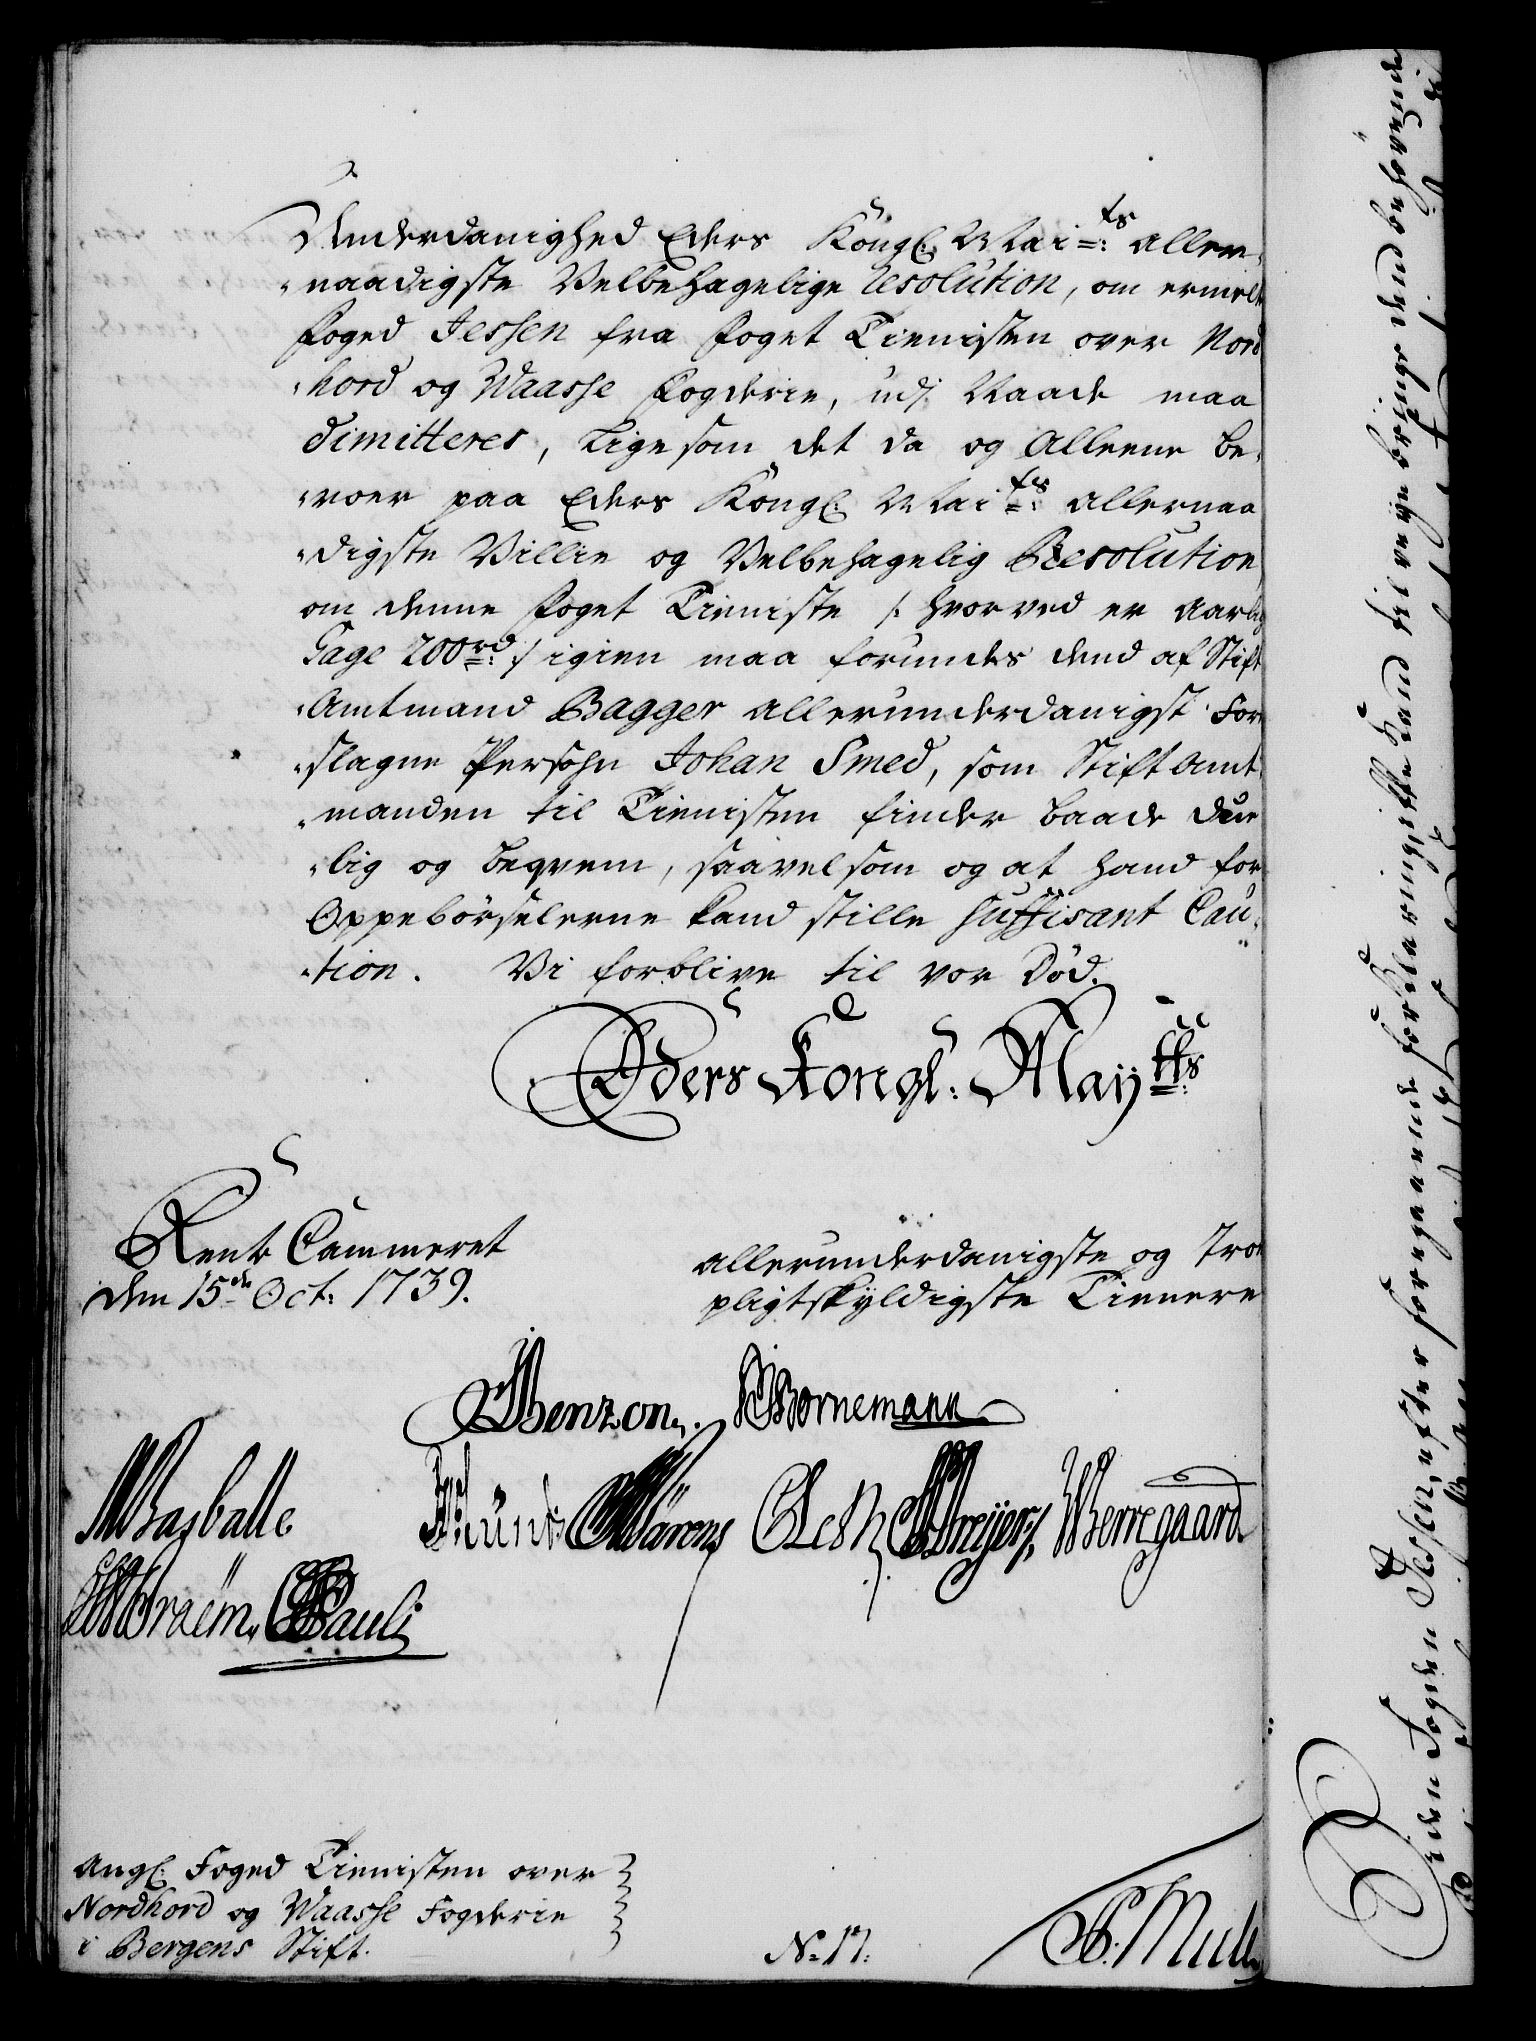 Underdanighed Eders Kongl. Mai=ts: aller-
-naadigste Velbehagelige resolution, om ermelte
Foged Jessen fra Foget Tienisten over Nord
-hord og Waasse Fogderie, udj Naade maa
dimitteres, Ligesom det da og Alleene be-
-roer paa Eders Kongl. Mai=ts: allernaa
-digste Villie og Velbehagelig Resolution
om denne Foget Tieniste /: hvorved er aarlig
Gage 200 rd :/ igien maa forundes dend af Stift
-Amtmand Bagger allerunderdanigst For
-slagne Persohn Johan Smed, som Stift Amt
-manden til Tienisten finder baade due
-lig og beqvem, saavelsom og at hand for
Oppebörselerne kand stille suffisant Cau-
-tion. Vi forblive til vor Död.
Eders Kongl: Maÿtts:
Rente Cammeret
den 15de Oct: 1739.
allerunderdanigste og Tro
pligtskyldigste Tienere
Benzon. Bornemann
Basballe Munk Wärens Lesth Dreÿer Berregaard
Braëm. Pauli
Angl. Foged Tienisten over
Nordhord og Waasse Fogderie
i Bergens Stift.
No 17:
Müll
Siden Fogden Jessen, efter foregaaende forklaring, ikke kand til veÿe bringe dend behörende